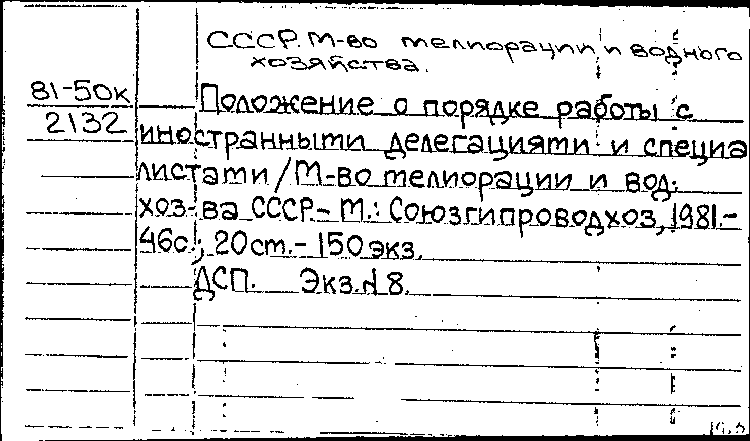 СССР. М-во мелиорации и водного
хозяйства.
81-50к
2132
Положение о порядке работы с
иностранными делегациями и специа
листами / М-во мелиорации и вод.
хоз-ва СССР.- М.: Союзгипроводхоз, 1981.-
46с.; 20см.- 150экз.
ДСП. Экз.№8.